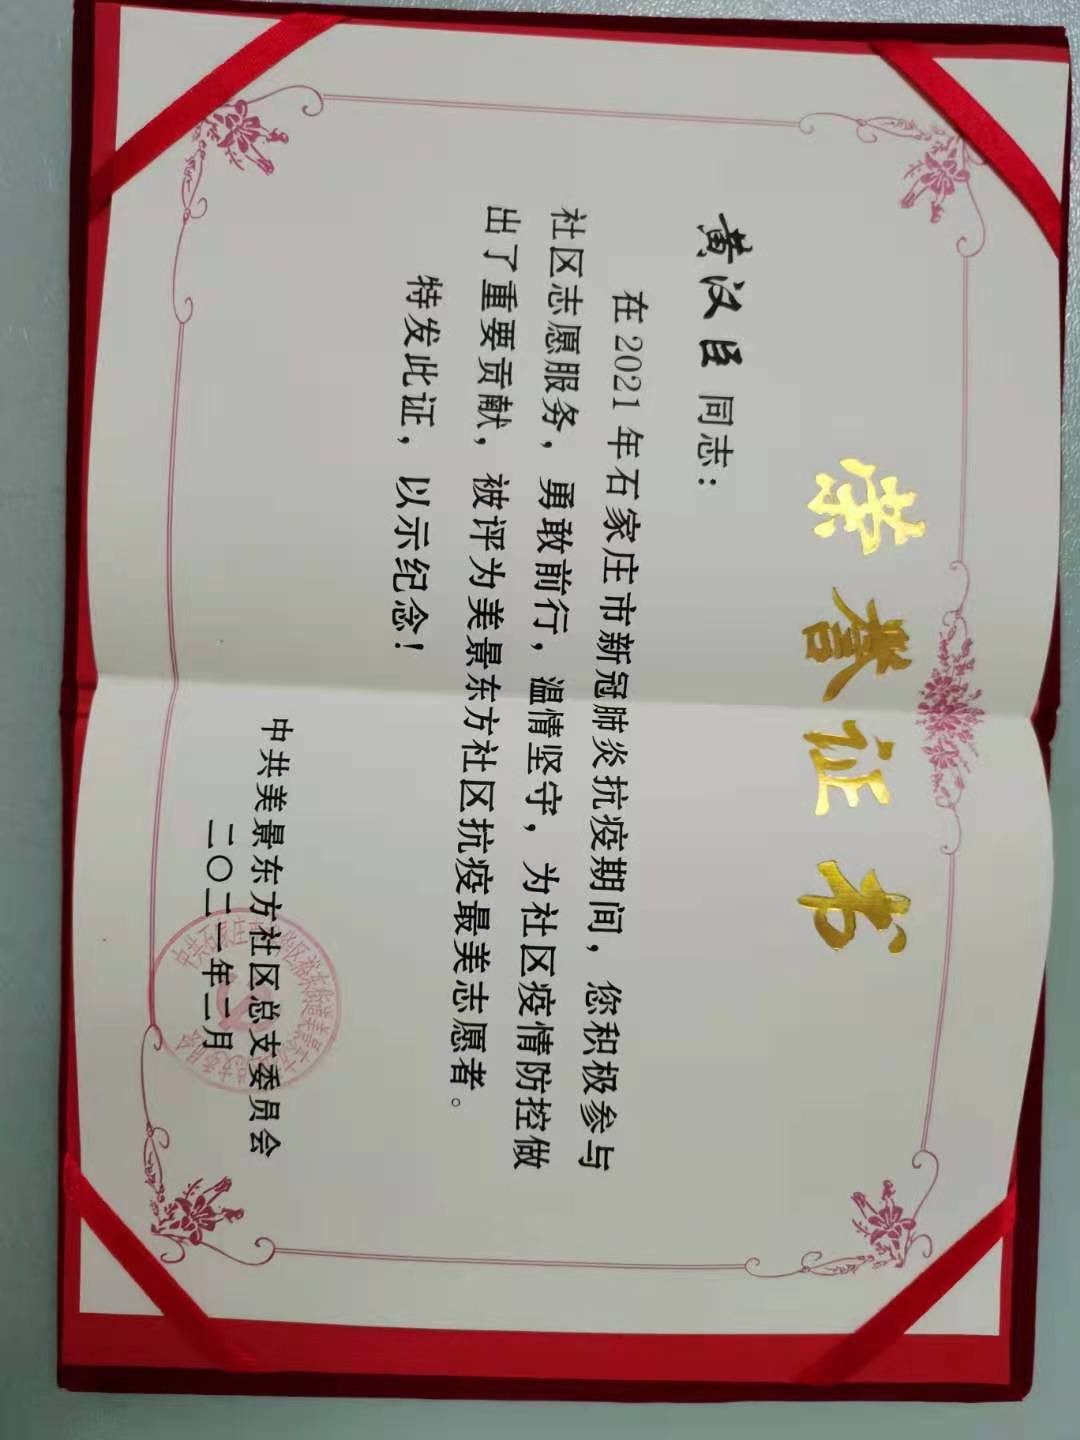 荣誉证书
黄汉臣同志：
在2021年石家庄市新冠肺炎抗疫期间，您积极参与
社区志愿服务，勇敢前行，温情坚守，为社区疫情防控做
出了重要贡献，被评为美景东方社区抗疫最美志愿者。
特发此证，以示纪念！
中共美景东方社区总支委员会
二〇二二年二月